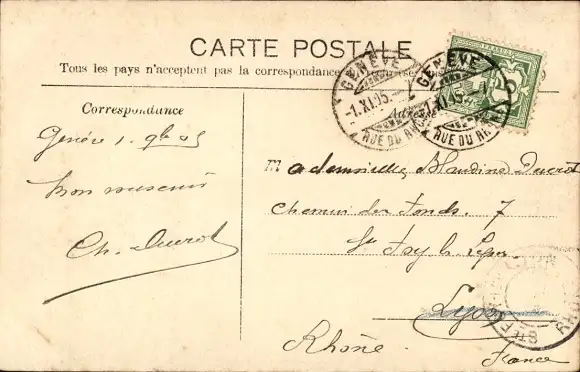 CARTE POSTALE
Tous les pays n'acceptent pas la correspondance
Correspondance
Adresse
GENÈVE
-1.XI.05.
RUE DU
GENÈVE
-1.XI.05.
RUE DU
FRANCO
5
Genève 1. 9bre 05
bon souvenir
Ch. Ducrot
Mademoiselle Blandine Ducrot
Chemin des Fonds. 7
Ste Foy les Lyon
Lyon
Rhône
France